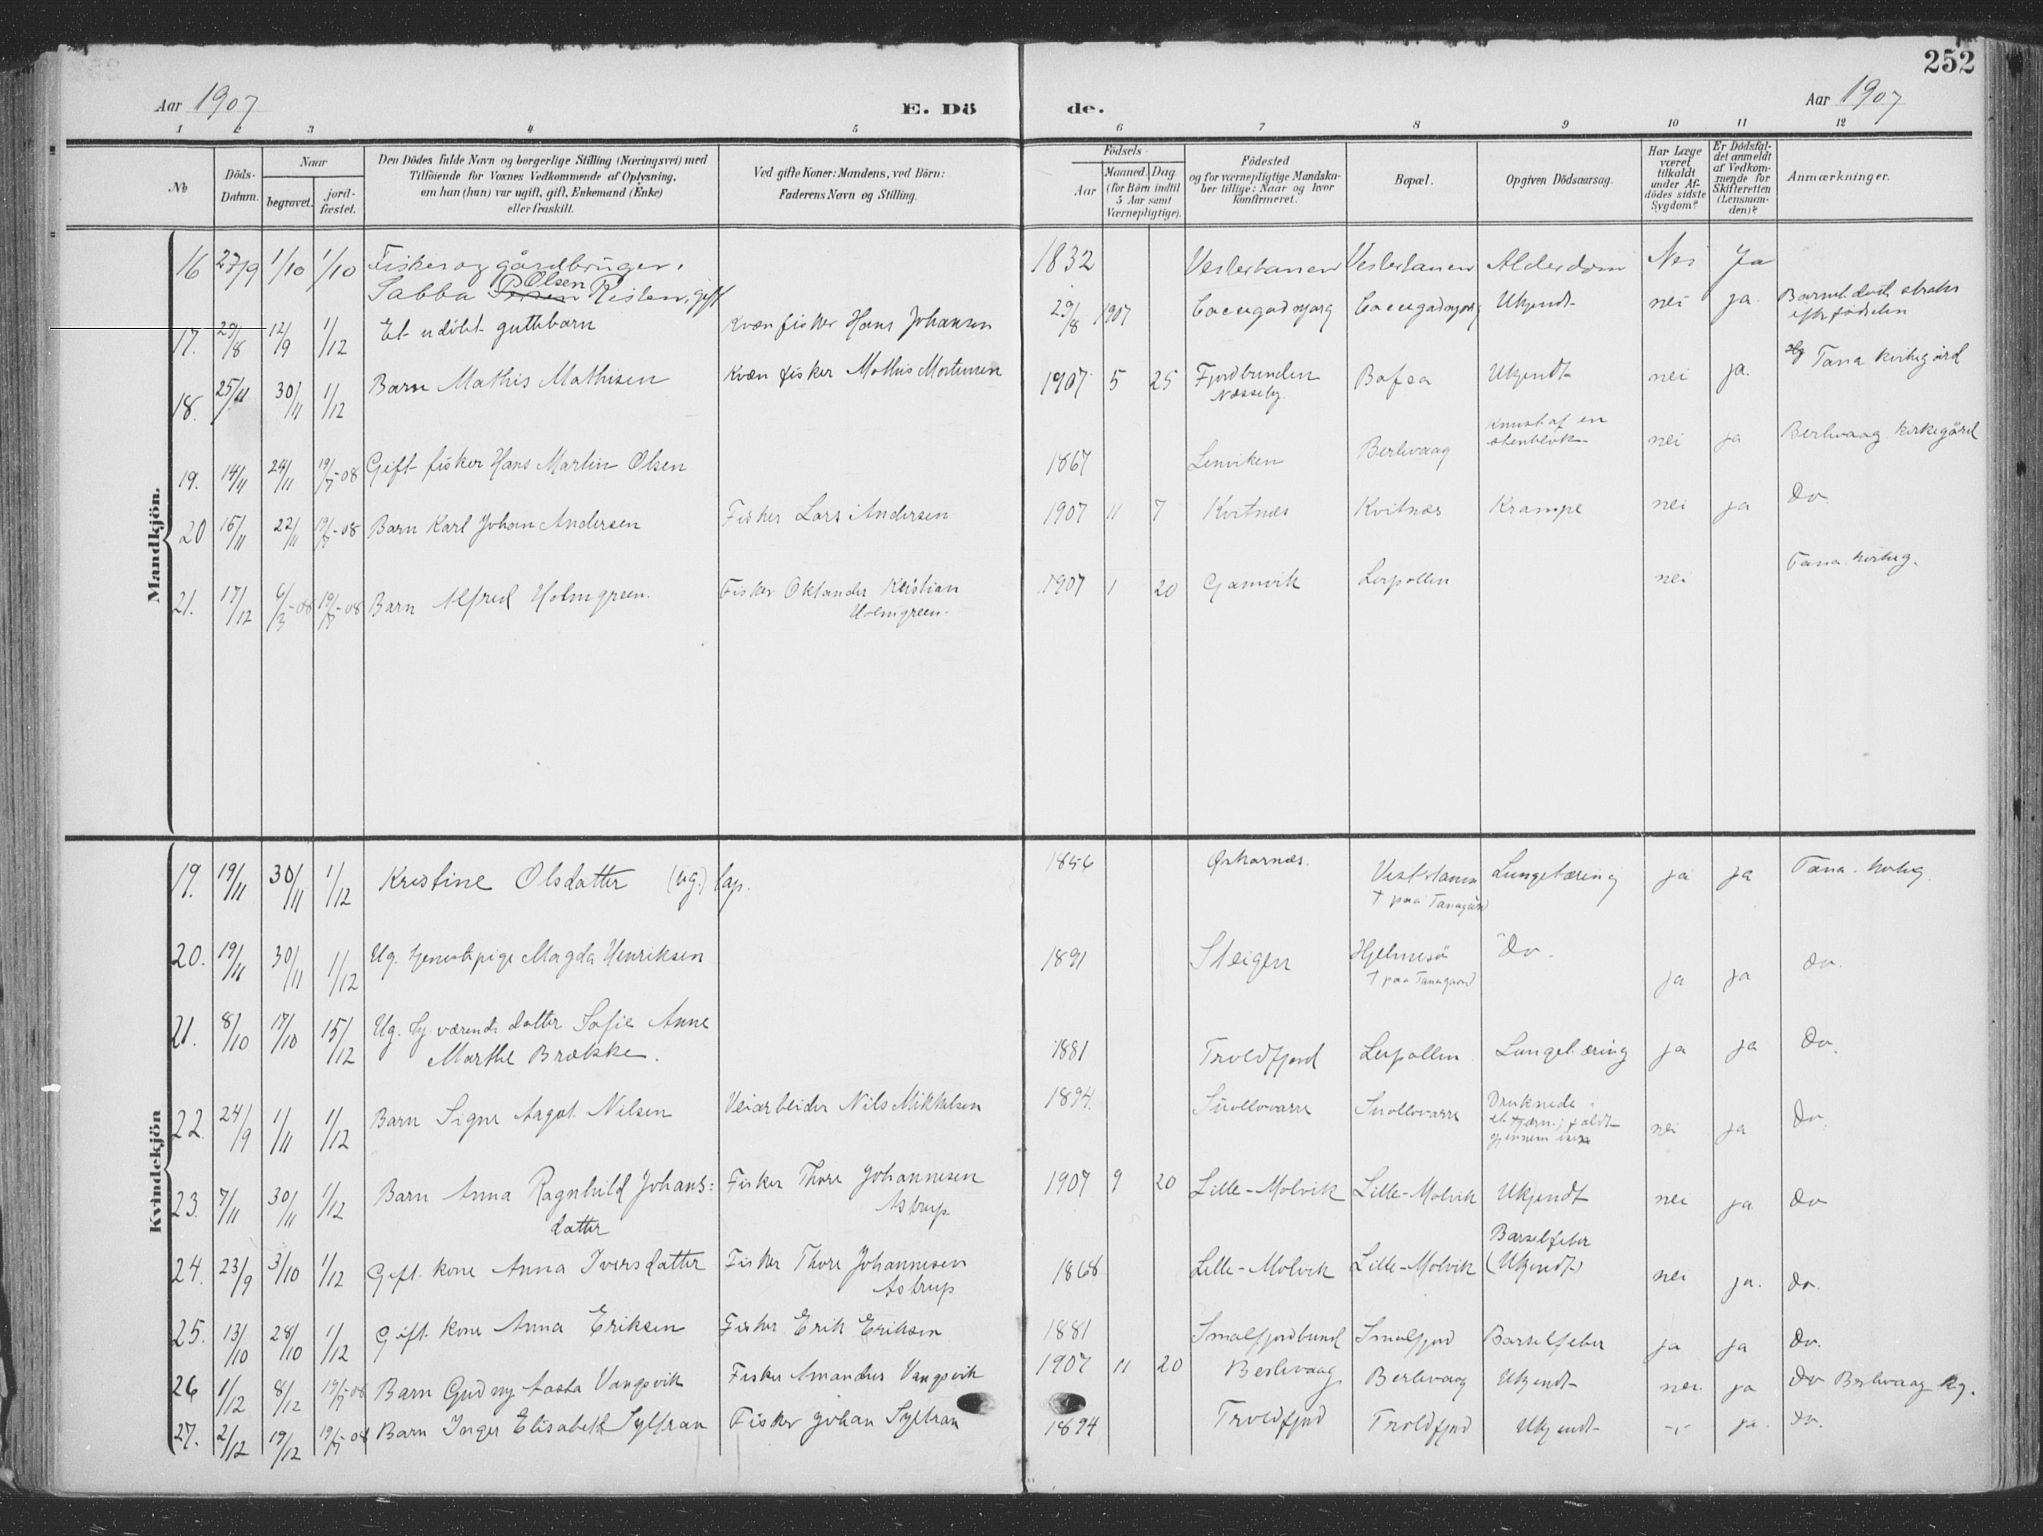 252
Aar 1907 E. Dö de. Aar 1907
1 2 3 4 5 6 7 8 9 10 11 12
No
Döds-Datum.
Naar
begravet.
jord-fæstet.
Den Dödes fulde Navn og borgerlige Stilling (Næringsvei) med
Tilföiende for Voxnes Vedkommende af Oplysning,
om han (hun) var ugift, gift, Enkemand (Enke)
eller fraskilt.
Ved gifte Koner: Mandens, ved Börn:
Faderens Navn og Stilling.
Födsels-
Aar
Maaned. Dag.
(for Börn indtil
5 Aar samt
Værnepligtige).
Födested
og for værnepligtige Mandska-
ber tillige: Naar og hvor
konfirmeret.
Bopæl.
Opgiven Dödsaarsag.
Har Læge
været
tilkaldt
under Af-
dödes sidste
Sygdom?
Er Dödsfal-
det anmeldt
af Vedkom-
mende for
Skifteretten
(Lensman-
den)?
Anmærkninger.
Mandkjön.
16 27/9 1/10 1/10 Fisker og gårdbruger. 1832 Vestertanen Vestertanen Alderdom Nei Ja
Sabba Olsen Risten, gift
17. 29/8 12/9 1/12 Et udöbt guttebarn Kvæn fisker Hans Johansen 29/8 1907 Ukjendt nei ja. Barnet döde straks
efter födselen
18. 25/11 30/11 1/12 Barn Mathis Mathisen Kvæn fisker Mathis Mortensen 1907 5 25 Fjordbunden Ukjendt nei ja. Tana kirkegård
Næsseby.
19. 14/11 24/11 19/7-08 Gift fisker Hans Martin Olsen 1867 Lenviken Berlevaag Knust af en
stenblok nei ja Berlevaag kirkegård
20 15/11 22/11 19/7-08 Barn Karl Johan Andersen Fisker Lars Andersen 1907 11 7 Kvitnæs Kvitnæs Krampe nei ja Do
21. 17/12 6/3-08 19/7-08 Barn Alfred Holmgreen. Fisker Oktander Kristian 1907 1 20 Gamvik Lerpollen nei Tana kirkeg.
Holmgreen.
Kvindekjön
19. 19/11 30/11 1/12 Kristine Olsdatter (ug.) lap. 1856 Vestertanen Lungetæring ja ja Tana kirkeg.
† paa Tanagård
20. 19/11 30/11 1/12 Ug. tjenestepige Magda Henriksen 1891 Steigen Hjelmesö Do. ja ja do.
† paa Tanagaard
21. 8/10 17/10 15/12 Ug. hj. værende datter Sofie Anne
Marthe Brække. 1881 Troldfjord Lerpollen Lungetæring ja ja Do.
22. 24/9 1/11 1/12 Barn Signe Aagot Nilsen Veiarbeider Nils Mikkelsen 1894. Suollovarre Suollovarre Druknede i
et tjærn; faldt
gjennem isen nei ja Do.
23. 7/11 30/11 1/12 Barn Anna Ragnhild Johans- Fisker Thore Johannesen 1907 9 20 Lille-Molvik Lille-Molvik Ukjendt nei ja Do
datter Astrup.
24. 23/9 3/10 1/12 Gift kone Anna Iversdatter Fisker Thore Johannesen 1868 Lille-Molvik Lille-Molvik Barselfeber
(Ukjendt) nei ja. Do.
Astrup
25. 13/10 28/10 1/12 Gift kone Anna Eriksen Fisker Erik Eriksen 1881 Smalfjordbund Smalfjord Barselfeber ja ja Do.
26 1/12 8/12 19/7-08 Barn Gudny Aasta Vangsvik Fisker Amandus Vangsvik 1907 11 20 Berlevaag Berlevaag Ukjendt nei ja Do Berlevaag kg.
27. 2/12 19/12 19/7-08 Barn Inger Elisabeth Syltran Fisker Johan Syltran 1894 Troldfjord Troldfjord Ukjendt -,- ja. do.